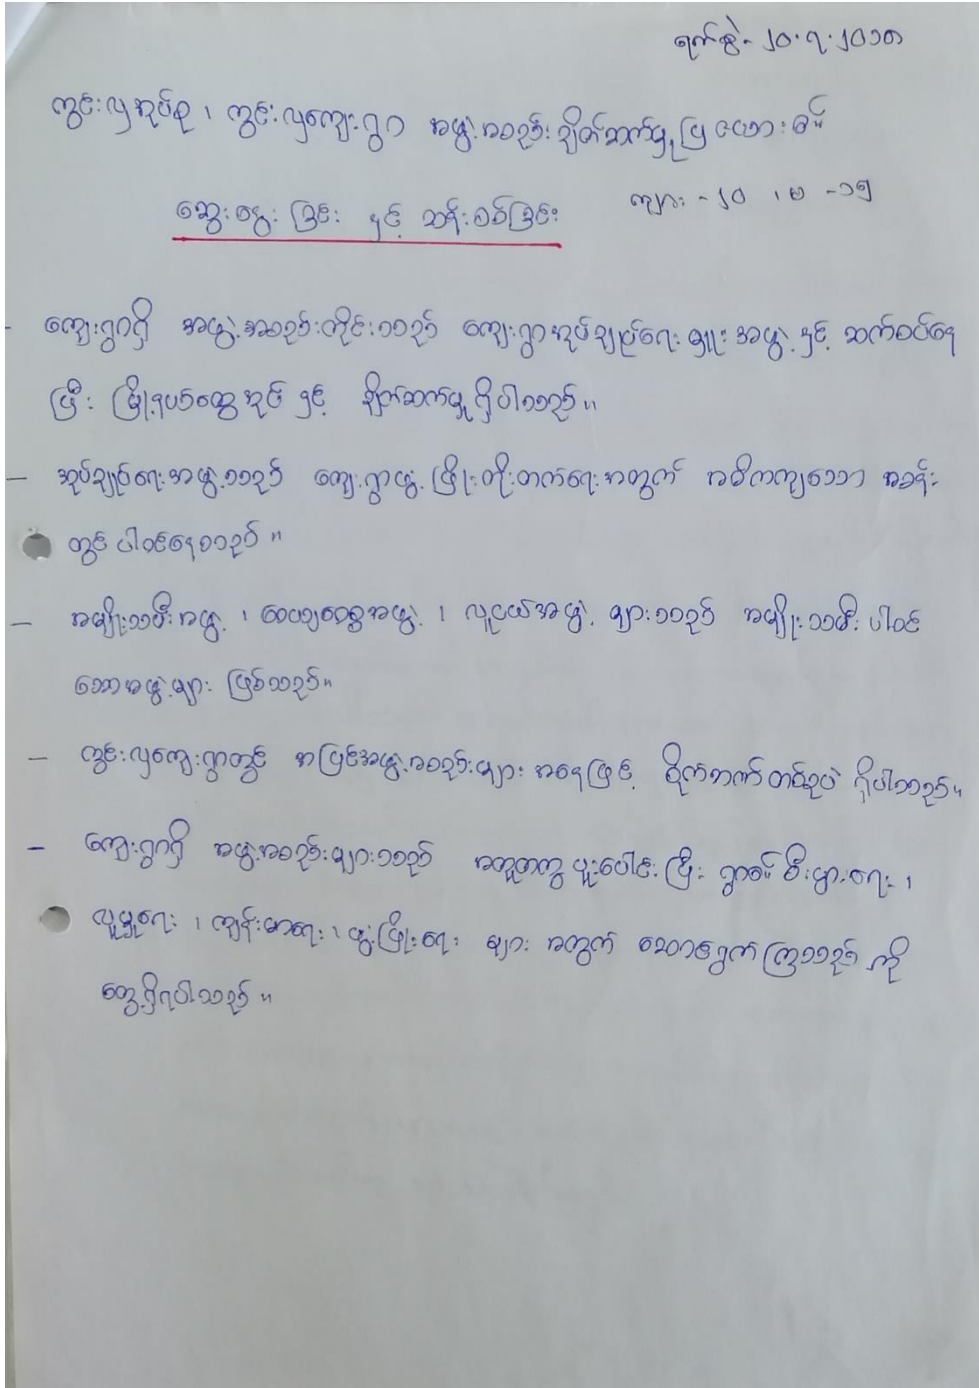 ရက်စွဲ- ၂၀.၇.၂၀၁၈
ကွင်းလှအုပ်စု ၊ ကွင်းလှကျေးရွာ အဖွဲ့အစည်း ချိတ်ဆက်မှုပြ ဇယား စင်
ကျား - ၂၀ ၊ မ - ၁၅
ဆွေးနွေးခြင်း နှင့် ဆန်းစစ်ခြင်း
- ကျေးရွာရှိ အဖွဲ့အစည်းတိုင်းသည် ကျေးရွာအုပ်ချုပ်ရေးမှူးအဖွဲ့ နှင့် ဆက်စပ်နေ
ပြီး မြို့နယ်ထွေအုပ် နှင့် ချိတ်ဆက်မှု ရှိပါသည်။
- အုပ်ချုပ်ရေးအဖွဲ့သည် ကျေးရွာဖွံ့ဖြိုးတိုးတက်ရေးအတွက် အဓိကကျသော အခန်း
တွင် ပါဝင်နေသည်။
- အမျိုးသမီးအဖွဲ့ ၊ ဝေယျာဝစ္စအဖွဲ့ ၊ လူငယ်အဖွဲ့ များသည် အမျိုးသမီး ပါဝင်
သောအဖွဲ့များ ဖြစ်သည်။
- ကွင်းလှကျေးရွာတွင် အပြင်အဖွဲ့အစည်းများ အနေဖြင့် စိုက်ဘဏ် တစ်ခုပဲ ရှိပါသည်။
- ကျေးရွာရှိ အဖွဲ့အစည်းများသည် အတူတကွ ပူးပေါင်းပြီး ရွာ၏ စီးပွားရေး ၊
လူမှုရေး ၊ ကျန်းမာရေး ၊ ဖွံ့ဖြိုးရေး များ အတွက် ဆောင်ရွက်ကြသည် ကို
တွေ့ရှိရပါသည်။